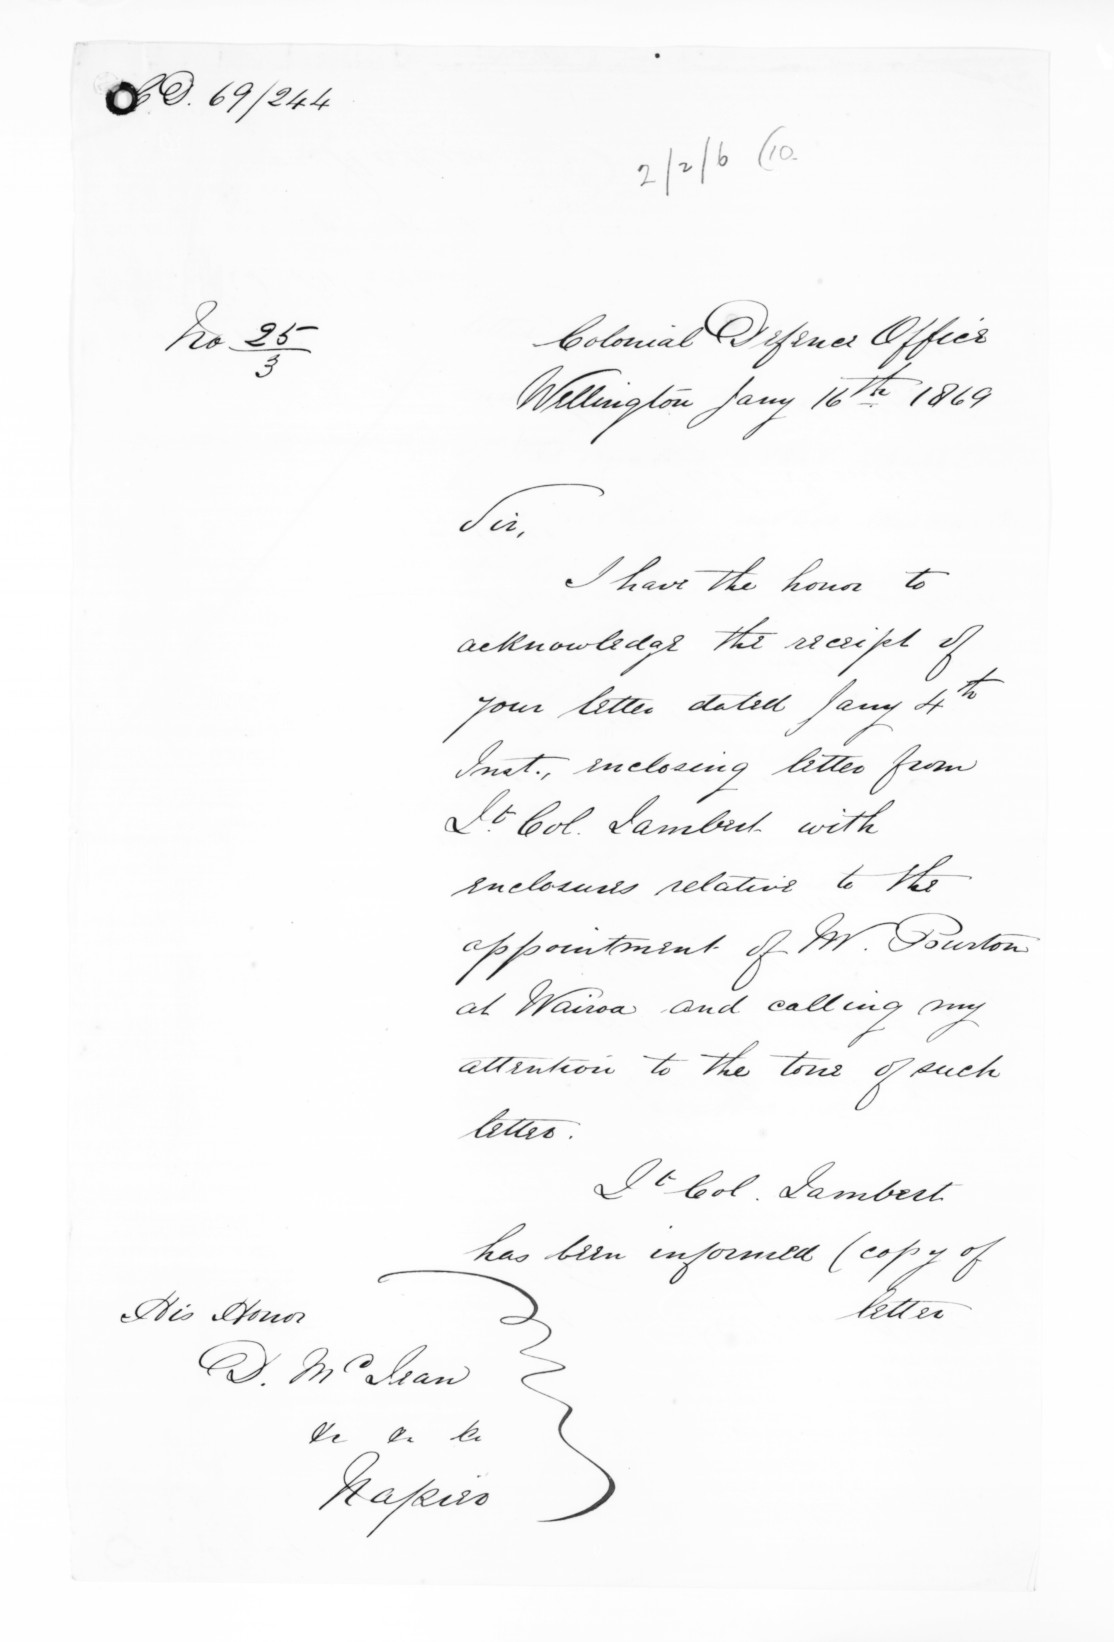 CD. 69/244
2/2/6 (10.
No 25/3
Colonial Defence Office
Wellington Jany 16th 1869
Sir,
I have the honor to
acknowledge the receipt of
your letter dated Jany 4th
Inst., enclosing letter from
Lt. Col. Lambert with
enclosures relative to the
appointment of Mr. Burton
at Wairoa and calling my
attention to the tone of such
letter.
Lt Col. Lambert
has been informed (copy of
letter
His Honor
D. McLean
&c &c &c
Napier